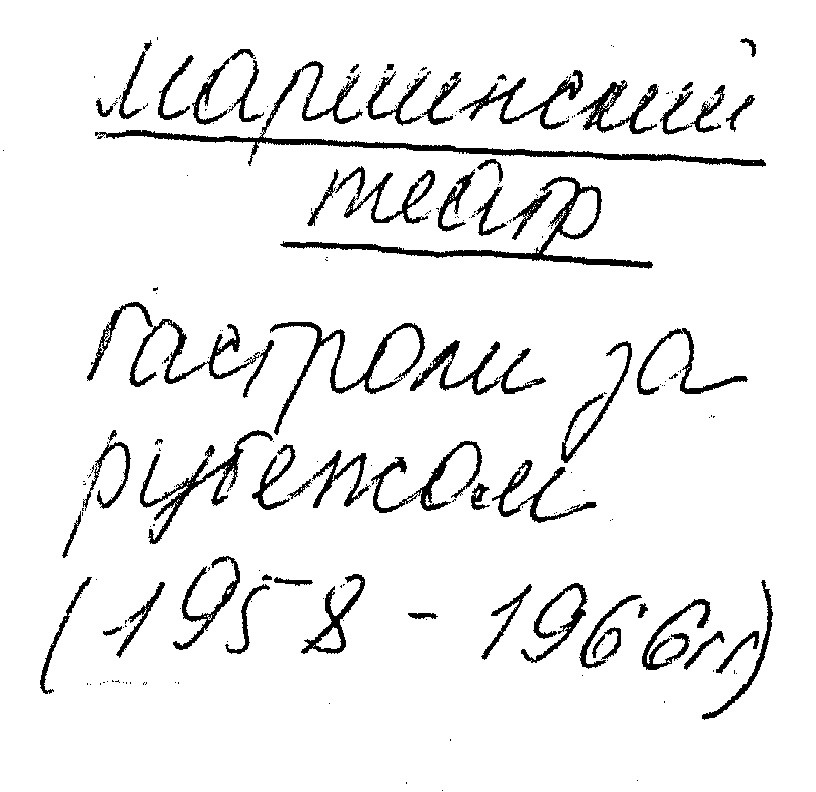 Мариинский
театр
Гастроли за
рубежом
(1958 - 1966гг)